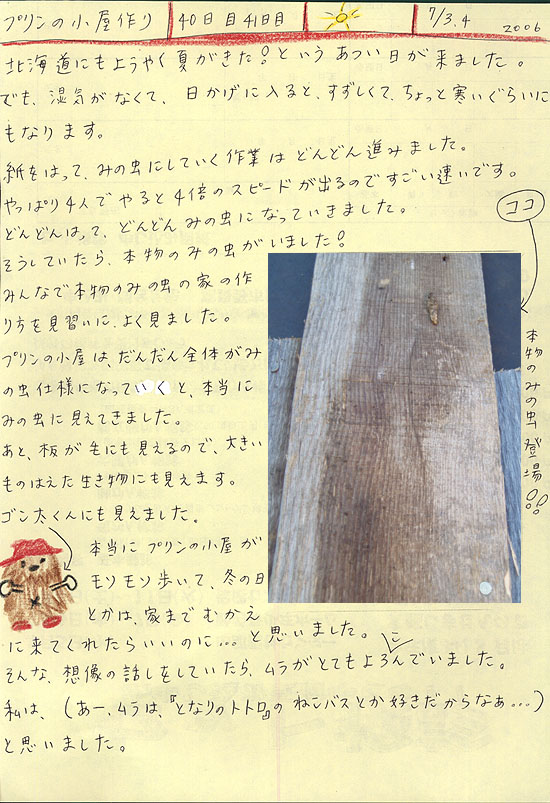 プリンの小屋作り 40日目41日目 7/3.4 2006
北海道にもようやく夏がきた!というあつい日が来ました。
でも、湿気がなくて、日かげに入ると、すずしくて、ちょっと寒いぐらいに
もなります。
紙をはって、みの虫にしていく作業はどんどん進みました。
やっぱり4人でやると4倍のスピードが出るのですごい速いです。
どんどんはって、どんどんみの虫になっていきました。
そうしていたら、本物のみの虫がいました!
ココ
みんなで本物のみの虫の家の作
り方を見習いに、よく見ました。
プリンの小屋は、だんだん全体がみ
の虫仕様になっていくと、本当に
みの虫に見えてきました。
あと、板が毛にも見えるので、大きい
ものはえた生き物にも見えます。
ゴン太くんにも見えました。
本物のみの虫登場!!
本当にプリンの小屋が
モソモソ歩いて、冬の日
とかは、家までむかえ
に来てくれたらいいのに…と思いました。
そんな、想像の話しをしていたら、ムラがとてもよろこんでいました。
私は、(あー、ムラは、『となりのトトロ』のねこバスとか好きだからなぁ…)
と思いました。